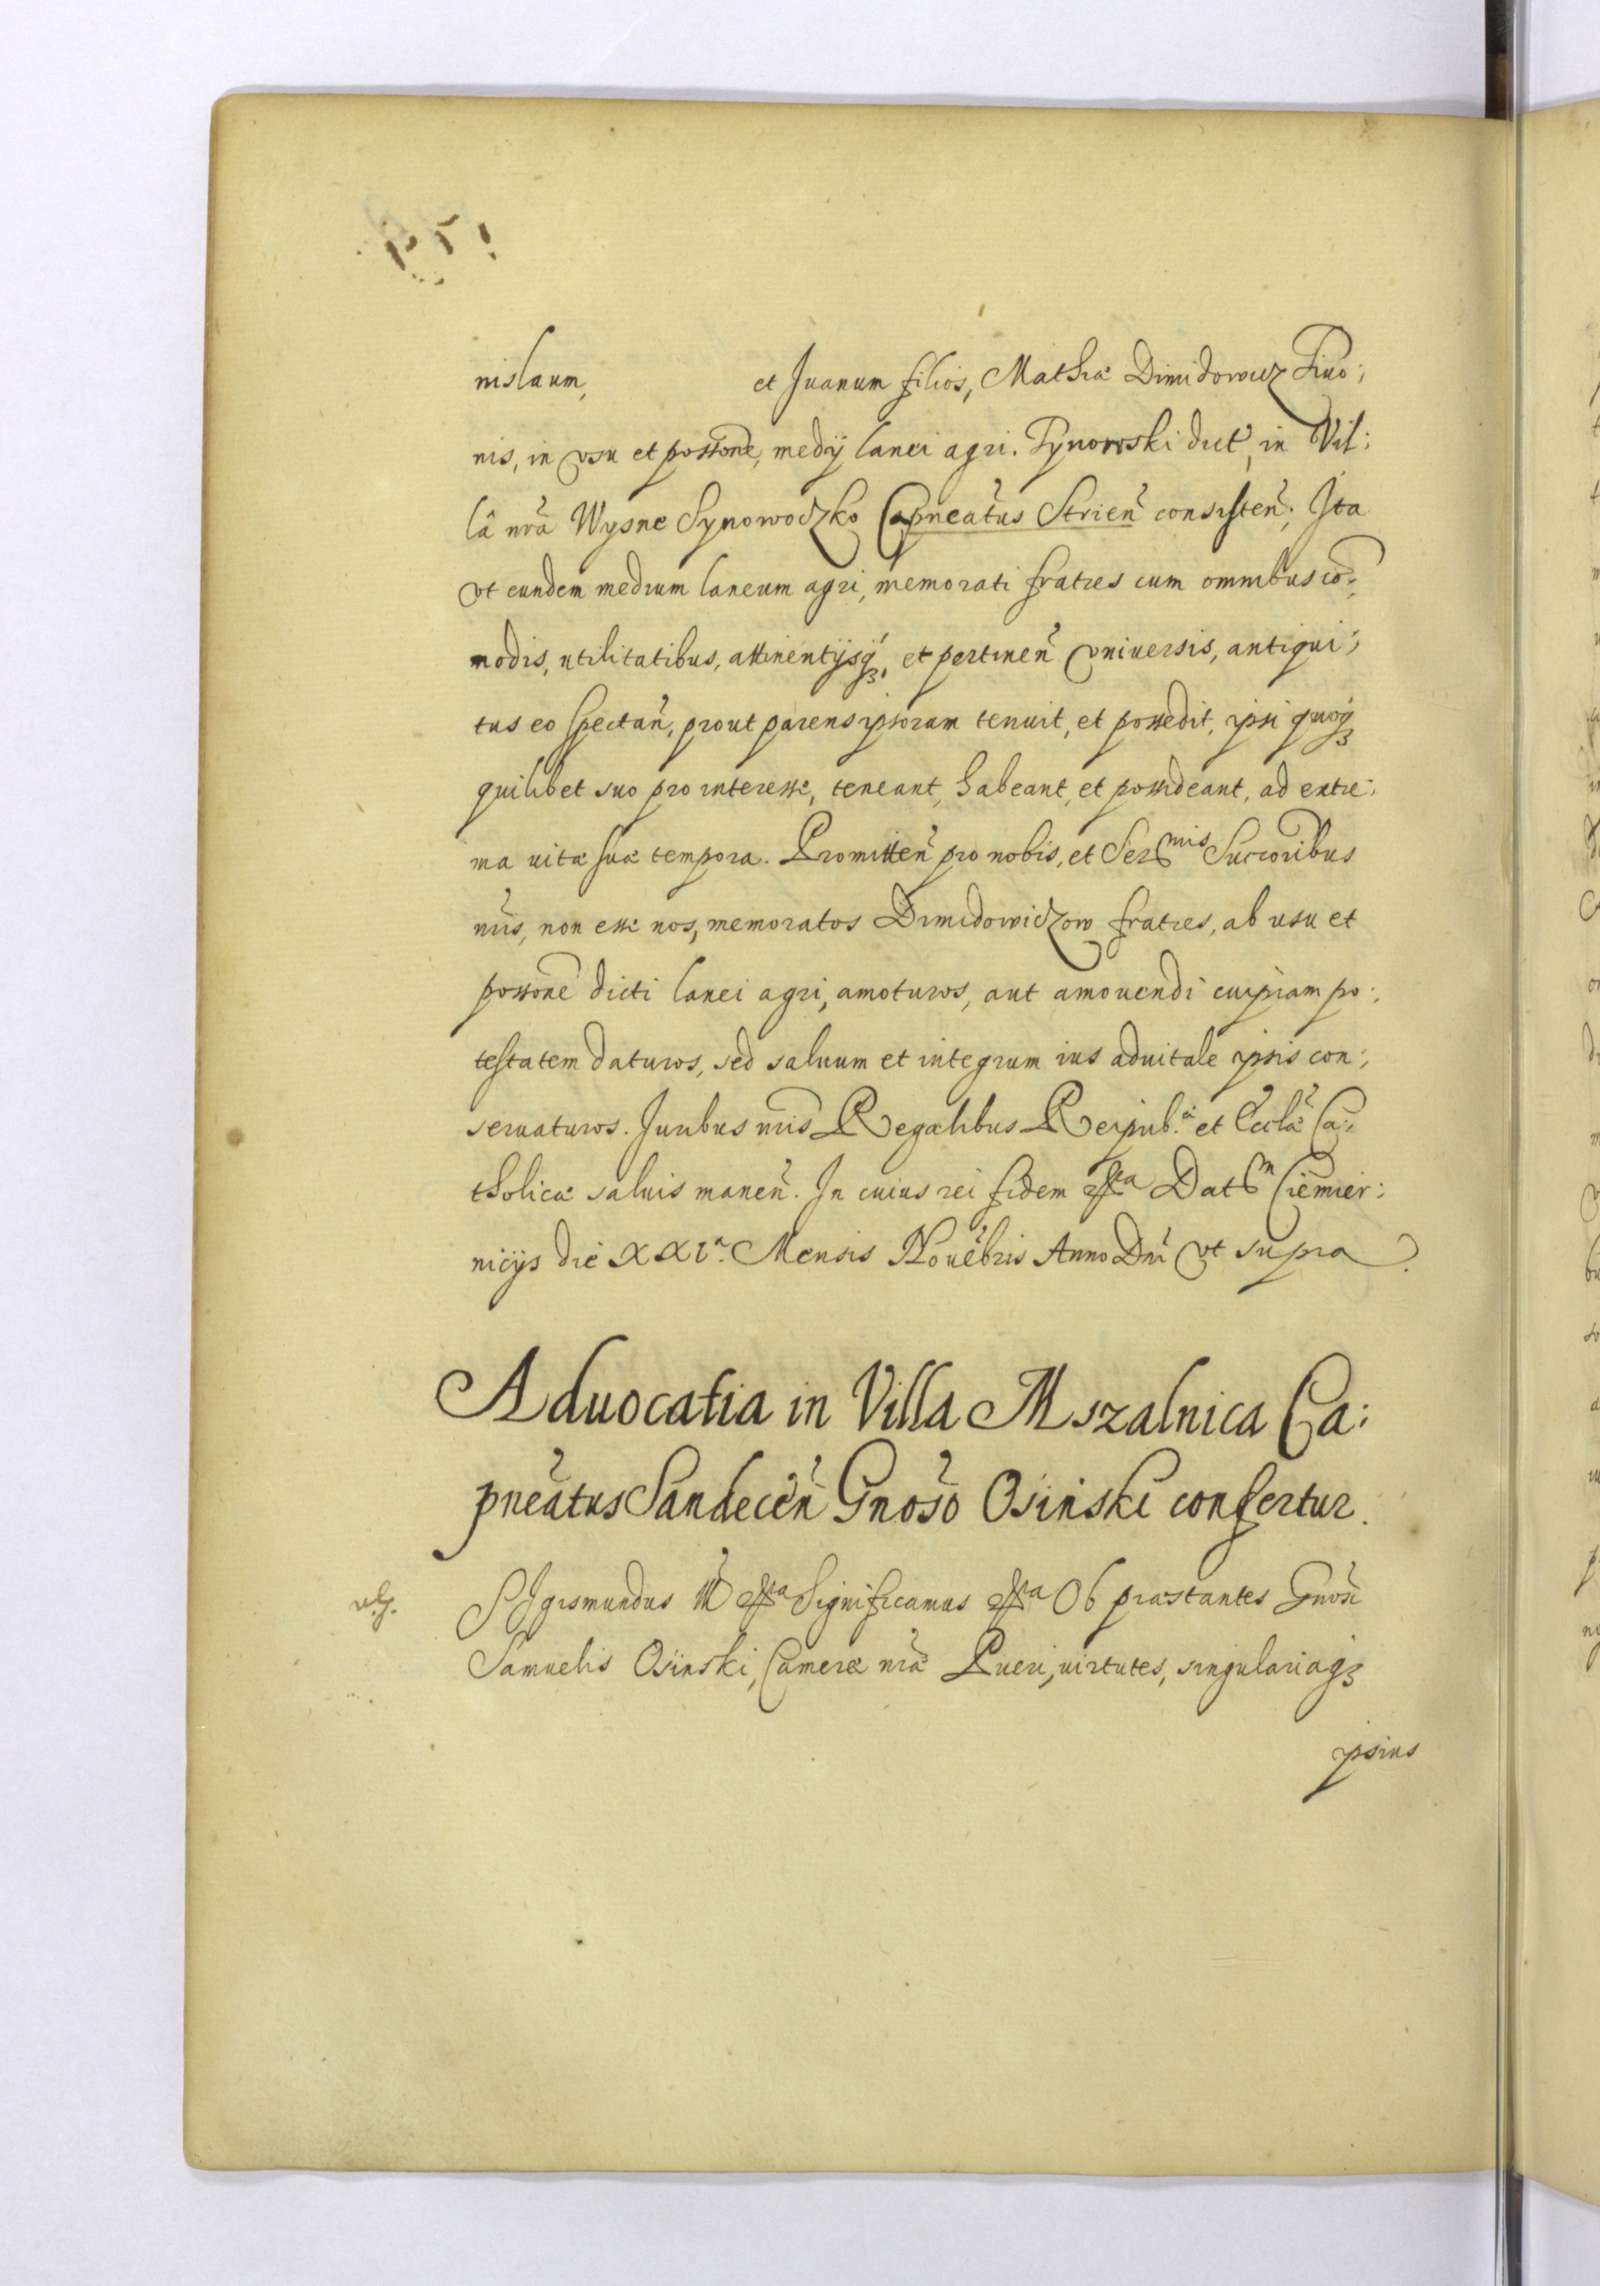 nislaum, et Juanum filios, Mathiæ Dimidowicz Tino;
nis, in vsu et possone, medij lanei agri. Tynowski dict, in Vil;
lâ nrã Wysne Synowodzko Capneãtus Strień consisteñ; Ita
vt eundem medium laneum agri, memorati fratres cum omnibus co;
modis, utilitatibus, attinentijsq3, et pertineñ vniuersis, antiqui;
tus eo spectañ, prout parens ipsorum tenuit, et possedit, ipsi quoq3
quilibet suo pro interesse, teneant, habeant, et possideant, ad extre;
ma uitæ suæ tempora. Promitteñ pro nobis, et Ser mis Succoribus
nris, non esse nos, memoratos Dimidowiczow fratres, ab usu et
possone dicti lanei agri, amoturos, aut amouendi cuipiam po;
testatem daturos, sed saluum et integrum ius aduitale ipsis con;
seruaturos. Juribus nris Regalibus Reipub.æ et Ecclæ Ca;
tholicæ saluis maneñ. In cuius rei fidem Dat m Ciemier;
nicijs die XXIa. Mensis Nouẽbris Anno Dni vt supra.
Aduocatia in Villa Mszalnica Ca;
pneãtus Sandeceñ Gnõso Osinski confertur.
SIgismundus III Significamus Ob præstantes Gnõsi
Samuelis Osinski, Cameræ nræ Pueri, uirtutes, singulariaq3
ipsius